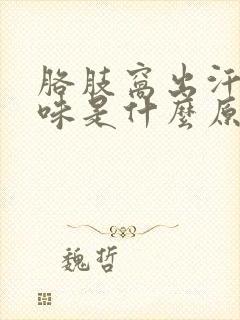 胳肢窩出汗
味是什麼原
魏哲